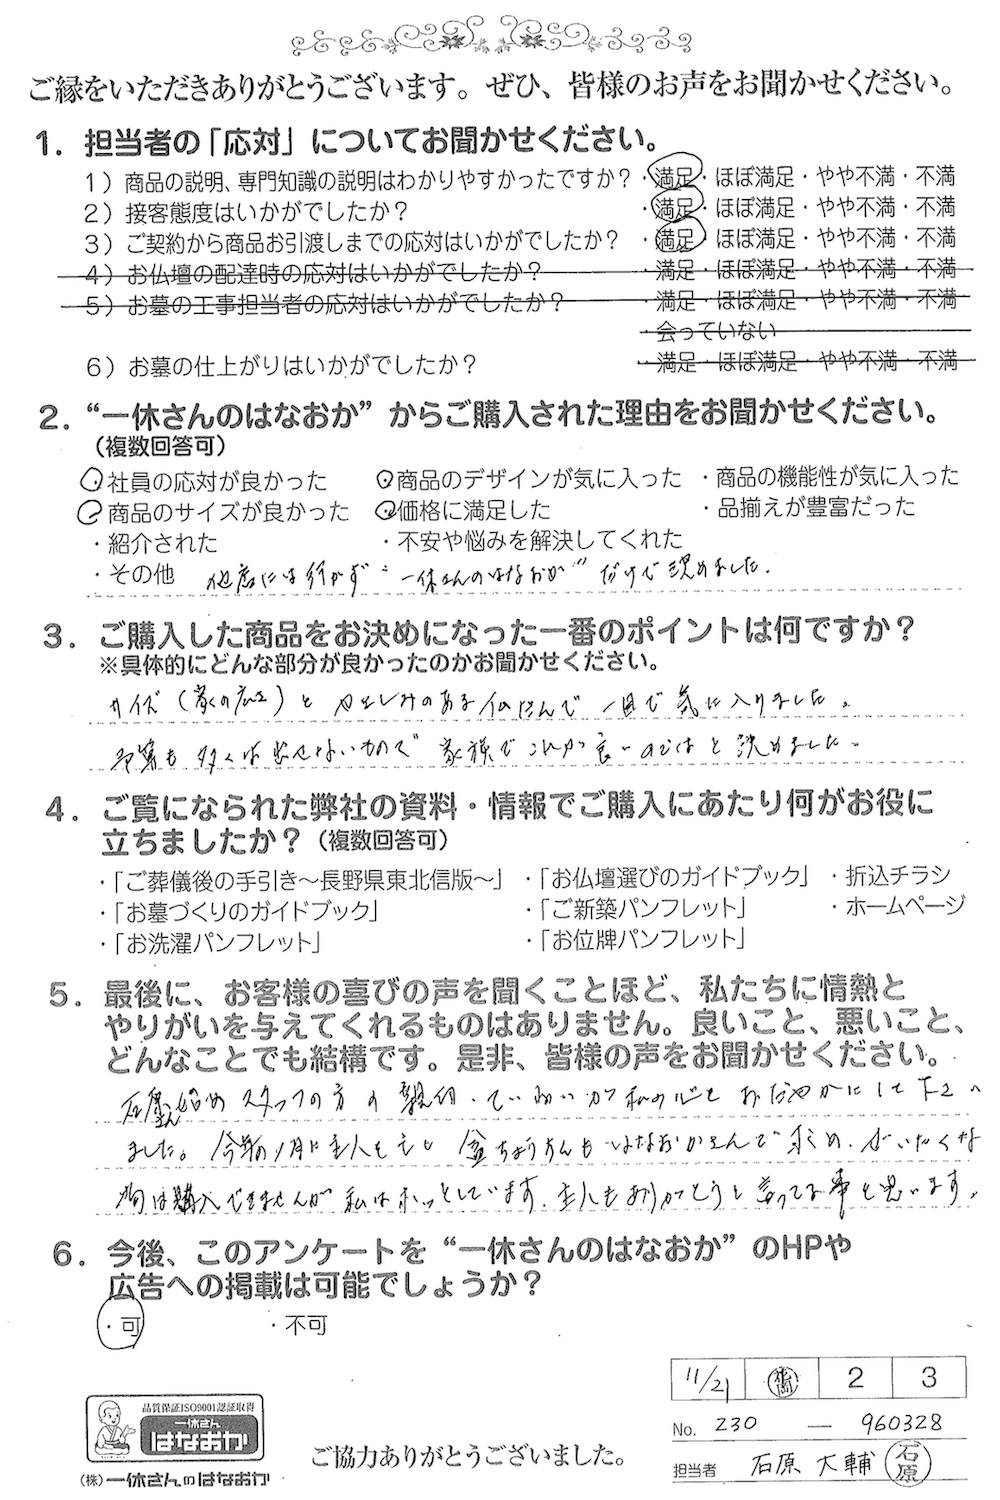 ご縁をいただきありがとうございます。ぜひ、皆様のお声をお聞かせください。
1. 担当者の「応対」についてお聞かせください。
1）商品の説明、専門知識の説明はわかりやすかったですか？・満足・ほぼ満足・やや不満・不満
2）接客態度はいかがでしたか？ ・満足・ほぼ満足・やや不満・不満
3）ご契約から商品お引渡しまでの応対はいかがでしたか？ ・満足・ほぼ満足・やや不満・不満
4）お仏壇の配達時の応対はいかがでしたか？ ・満足・ほぼ満足・やや不満・不満
5）お墓の工事担当者の応対はいかがでしたか？ ・満足・ほぼ満足・やや不満・不満
・会っていない
6）お墓の仕上がりはいかがでしたか？ ・満足・ほぼ満足・やや不満・不満
2. “一休さんのはなおか”からご購入された理由をお聞かせください。
（複数回答可）
・社員の応対が良かった ・商品のデザインが気に入った ・商品の機能性が気に入った
・商品のサイズが良かった ・価格に満足した ・品揃えが豊富だった
・紹介された ・不安や悩みを解決してくれた
・その他 他店には行かず“一休さんのはなおか”だけで決めました.
3. ご購入した商品をお決めになった一番のポイントは何ですか？
※具体的にどんな部分が良かったのかお聞かせください。
サイズ（家の広さ）と やさしみのある仏だんで 一目で気に入りました。
予算も多くは出せないもので 家族でこれが良いのではと決めました。
4. ご覧になられた弊社の資料・情報でご購入にあたり何がお役に
立ちましたか？（複数回答可）
・「ご葬儀後の手引き〜長野県東北信版〜」 ・「お仏壇選びのガイドブック」 ・折込チラシ
・「お墓づくりのガイドブック」 ・「ご新築パンフレット」 ・ホームページ
・「お洗濯パンフレット」 ・「お位牌パンフレット」
5. 最後に、お客様の喜びの声を聞くことほど、私たちに情熱と
やりがいを与えてくれるものはありません。良いこと、悪いこと、
どんなことでも結構です。是非、皆様の声をお聞かせください。
始め スタッフの方の親切、ていねいが私の心をおだやかにして下さい
ました。今年の1月に主人を 盆ちょうちんもはなおかさんで求め、ぜいたくな
物は購入できませんが 私はホッとしています. 主人もありがとうと言ってる事と思います。
6. 今後、このアンケートを“一休さんのはなおか”のHPや
広告への掲載は可能でしょうか？
・可 ・不可
11/21 花岡 2 3
No. 230 ― 960328
担当者 石原 大輔 石原
品質保証ISO9001認証取得
一休さん
はなおか
（株）一休さんのはなおか
ご協力ありがとうございました。